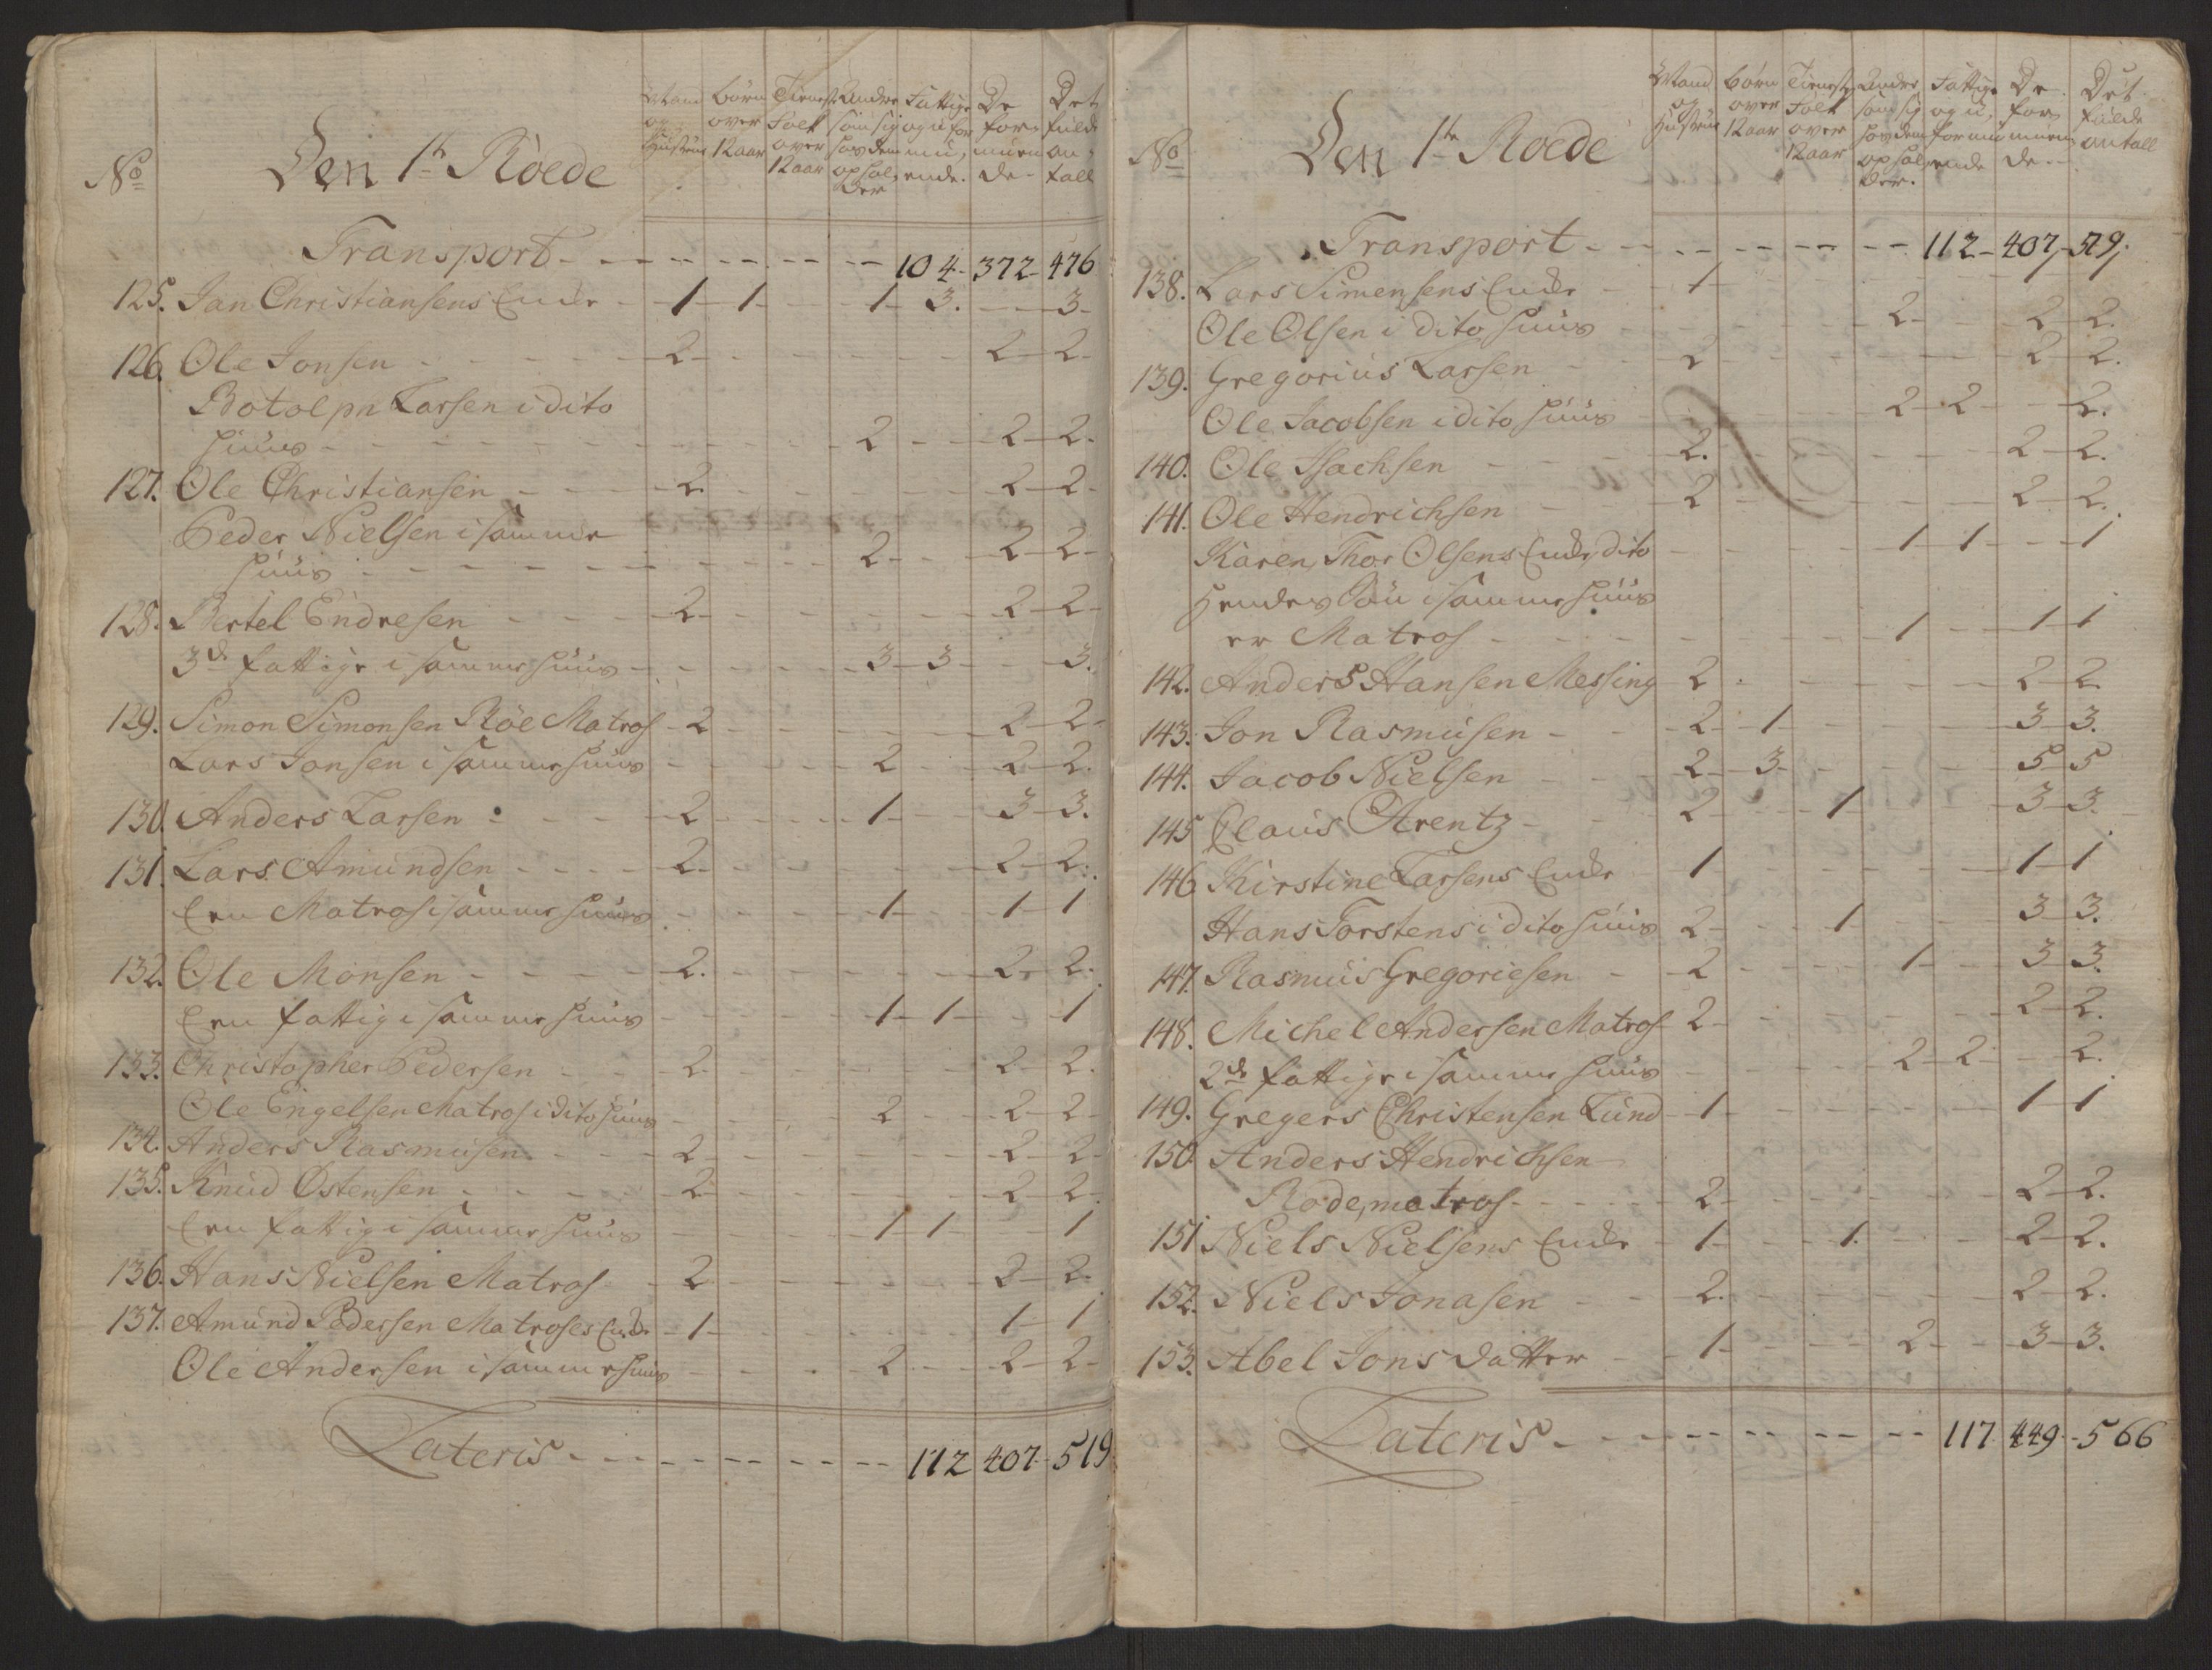 No
Den 1te Roede
Mand og Hustrue
börn over 12 aar
Tieneste Folk over 12 aar
Andre som sig hos dem opholder
Fattige og uformuende
De formuende
Det fulde antall
Transport - - - 104 - 372 - 476
125. Jan Christiansens Encke - 1 - 1 - 1 - 3. - 3 -
126. Ole Jonsen - 2 - 2 - 2 -
Botolph Larsen i dito
huus - 2 - 2 - 2.
127. Ole Christiansen - 2. - 2 - 2 -
Peder Nielsen i samme
huus - 2 - 2 - 2 -
128. Bertel Endresen - 2 - 2 - 2 -
3de fattige i samme huus - 3 - 3 - 3.
129. Simon Simonsen Röe Matros - 2 - 2 - 2 -
Lars Jonsen i samme huus - 2 - 2 - 2.
130. Anders Larsen - 2 - 1 - 3 - 3.
131. Lars Amundsen - 2 - 2 - 2.
Een Matros i samme huus - 1 - 1 - 1
132. Ole Monsen - 2. - 2 - 2.
Een fattig i samme huus - 1 - 1 - 1
133. Christopher Pedersen - 2 - 2 - 2.
Ole Engelsen Matros i dito huus - 2 - 2 - 2
134. Anders Rasmusen - 2 - 2 - 2
135. Knud Östensen - 2 - 2 - 2.
Een fattig i samme huus - 1 - 1 - 1
136. Hans Nielsen Matros - 2 - 2 - 2.
137. Amund Pedersen Matroses Encke - 1 - 1 - 1
Ole Andersen i samme huus - 2 - 2 - 2 -
Lateris - - - 112 407 - 519
No
Den 1te Roede
Mand og Hustrue
börn over 12 aar
Tieneste Folk over 12 aar
Andre som sig hos dem opholder.
Fattige og uformuende
De formuende
Det fulde antall
Transport - - - 112 - 407 - 519.
138. Lars Simensens Encke - 1
Ole Olsen i dito huus - 2 - 2 2.
139. Gregorius Larsen - 2 - 2 2.
Ole Jacobsen i dito huus - 2 - 2 - 2.
140. Ole Isachsen - 2. - 2 - 2.
141. Ole Hendrichsen - 2 - 2 - 2.
Karen Thor Olsens Encke, dito - 1 - 1 - 1
Hendes Sön i samme huus
er Matros - 1 - 1 - 1
142. Anders Hansen Messing - 2 - 2 - 2
143. Jon Rasmusen - 2 - 1 - 3 - 3.
144. Jacob Nielsen - 2 - 3 - 5 - 5
145 Claus Arentz - 2 - 1 - 3 - 3.
146 Kirstine Larsens Encke - 1 - 1 - 1
Hans Torstens i dito huus 2 - 1 - 3 - 3.
147. Rasmus Gregoriesen - 2 - 1 - 3 - 3.
148. Michel Andersen Matros - 2 - 2 - 2.
2de fattige i samme huus - 2 - 2 - 2.
149. Gregers Christensen Lund - 1 - 1 - 1
150. Anders Hendrichsen
Rodematros - 2 - 2 - 2.
151. Niels Nielsens Encke - 1 - 1. - 2 - 2.
152. Niels Jonasen - 2. - 2 - 2.
153. Abel Jons datter - 1 - 2 - 3 - 3.
Lateris - - - 117. 449 - 566